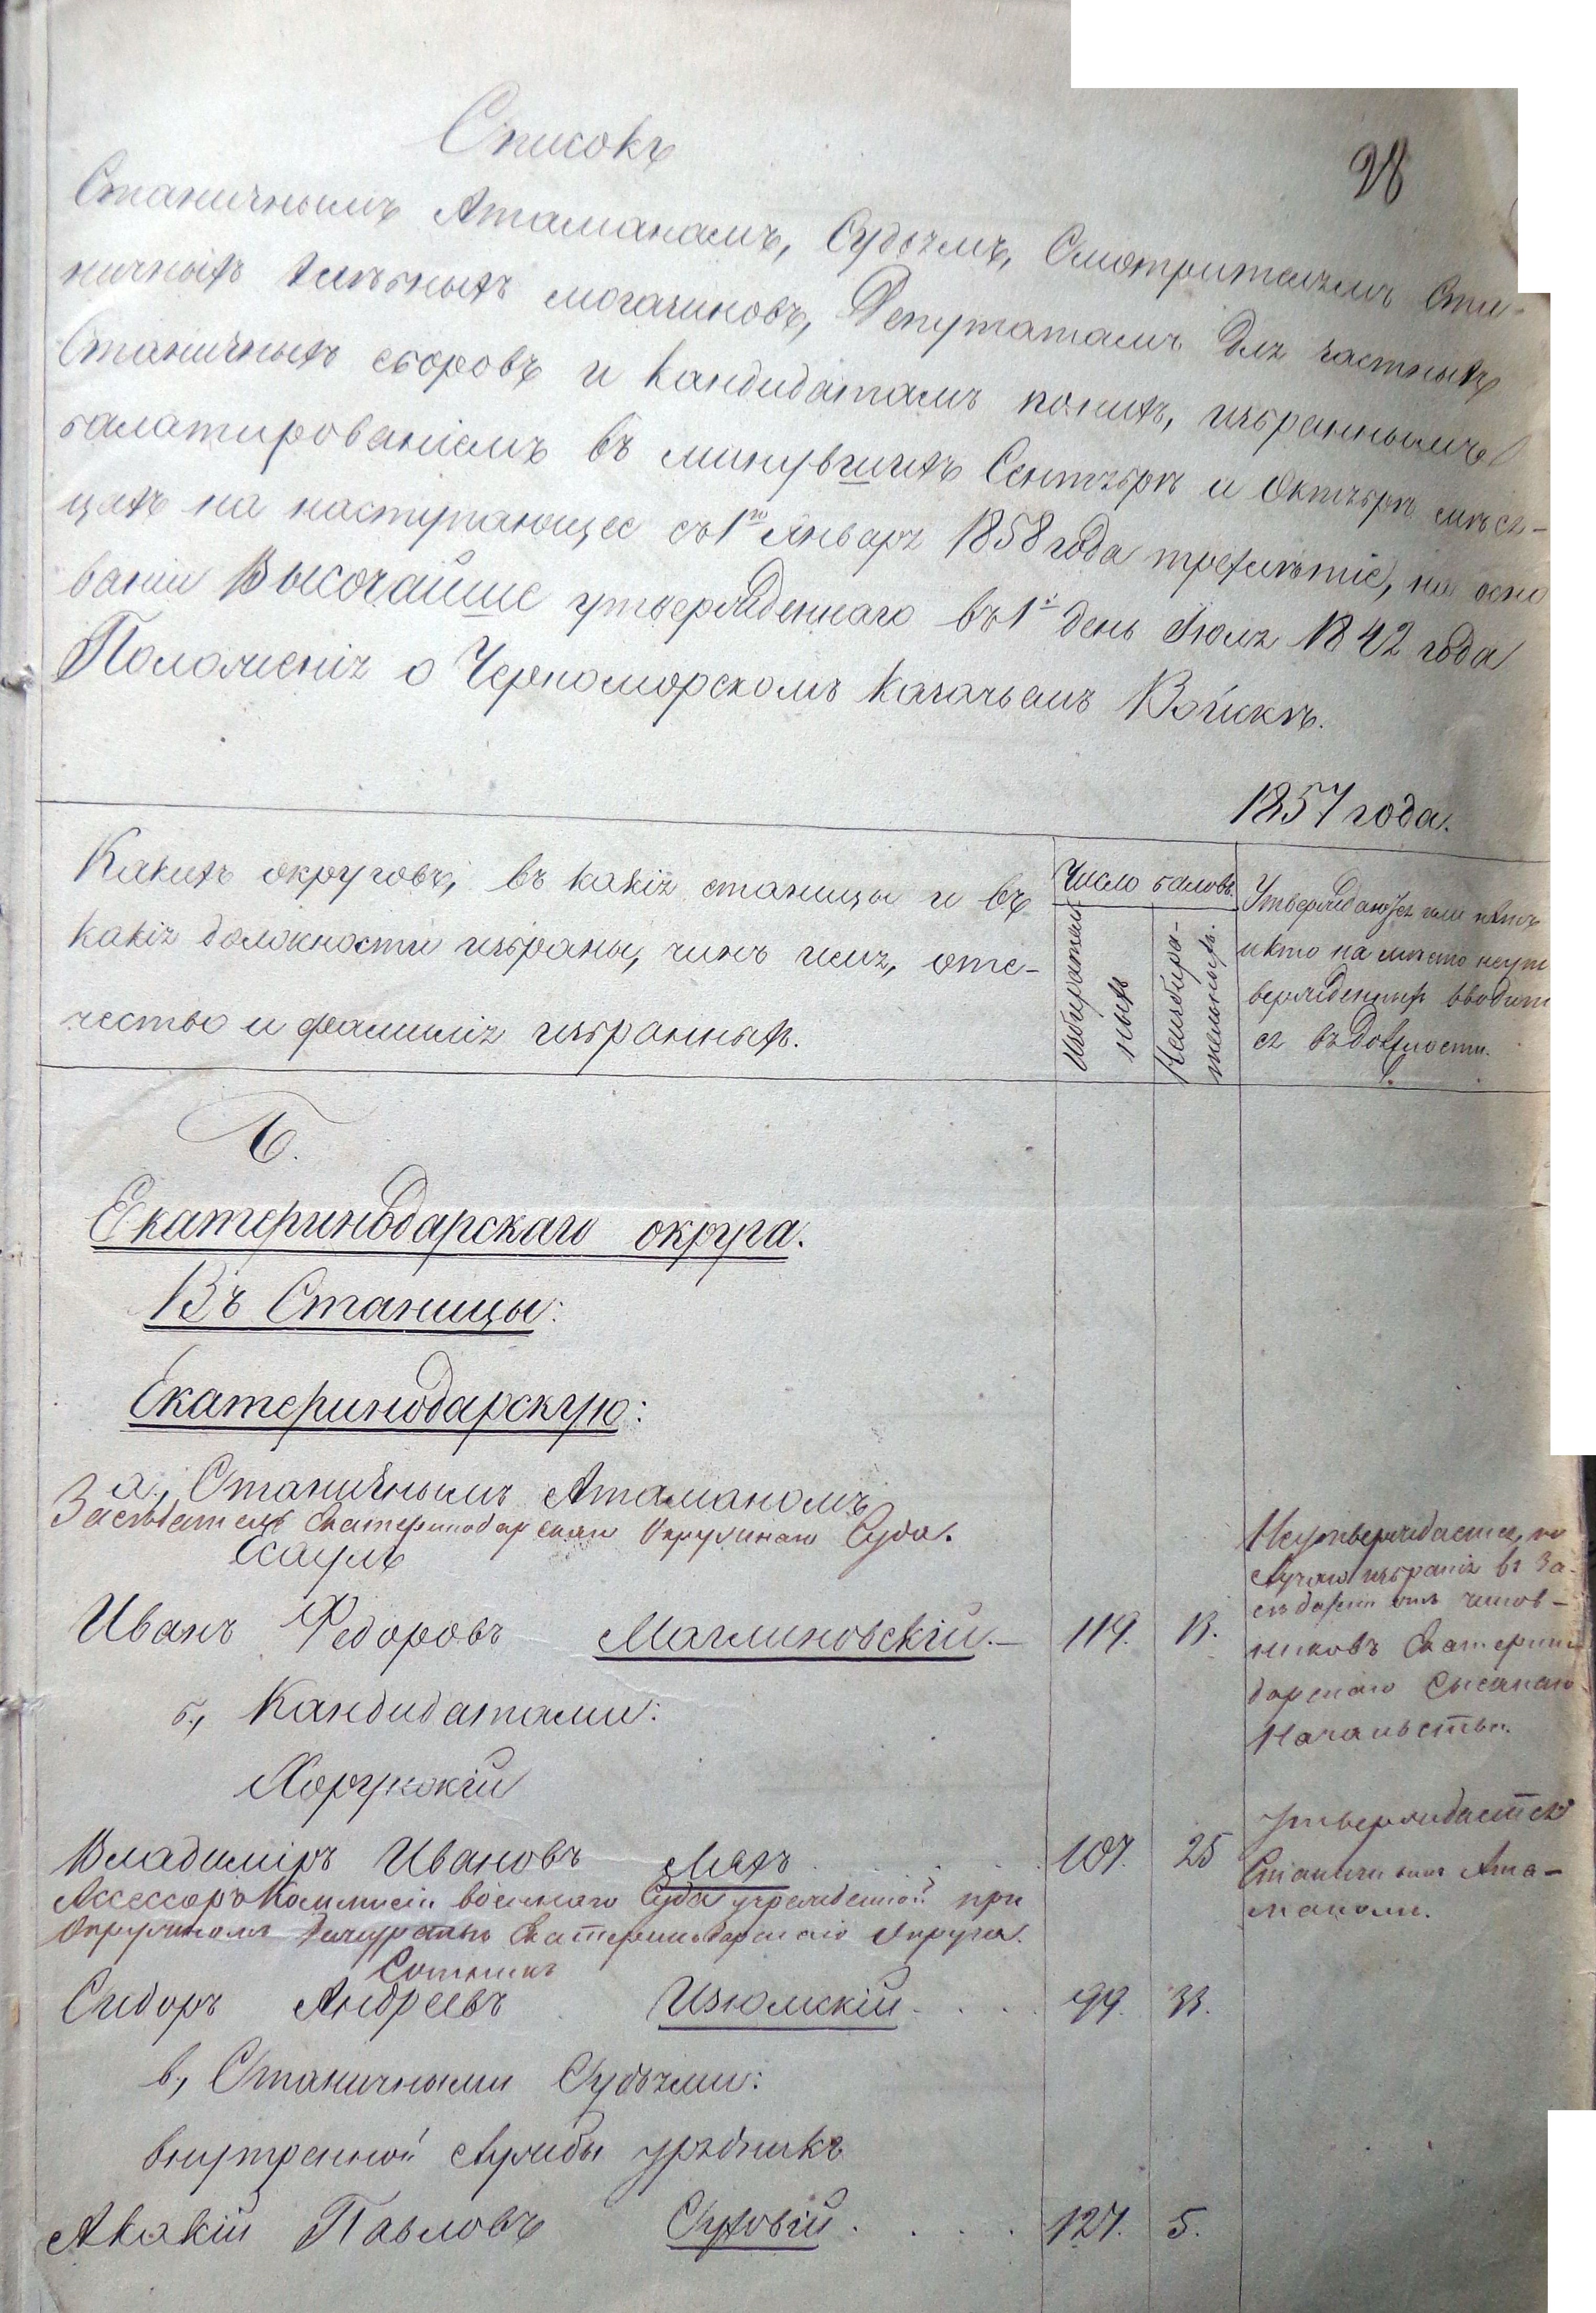 Списокъ
28
Станичнымъ Атаманамъ, Судьямъ, Смотрителямъ Ста-
ничныхъ хлѣбныхъ магазиновъ, Депутатамъ для частныхъ
Станичныхъ сборовъ и Кандидатамъ по нихъ, избраннымъ
балатированіемъ въ минувшихъ Сентябрѣ и Октябрѣ мѣся-
цахъ на наступающее съ 1го Января 1858 года трехлѣтіе, на осно
ваніи Высочайше утвержденнаго въ 1й день Іюля 1842 года
Положенія о Черноморскомъ Казачьемъ Войскѣ.
1857 года.
Какихъ округовъ, въ какія станицы и въ
какія должности избраны, чинъ имя, оте-
чество и фамилія избранныхъ.
Число баловъ.
Избиратель
ныхъ
Неизбира-
тельныхъ.
Утверждаются или нѣтъ
и кто на мѣсто неут
вержденныхъ вводит
ся въ должности.
Б.
Екатеринодарскаго округа.
Въ Станицы:
Екатеринодарскую:
а., Станичнымъ Атаманомъ
Засѣдатель Екатеринодарскаго Окружнаго Суда.
Есаулъ
Иванъ Федоровъ Магдиновскій.— 119. 13.
Неутверждается, по
случаю избранія въ За-
сѣдатели отъ чинов-
никовъ Екатерино
дарскаго Сыскнаго
Начальства.
б., Кандидатами:
Хорунжій
Владиміръ Ивановъ Ляхъ . . . . 107. 25
Утверждается
Станичнымъ Ата-
маномъ.
Ассессоръ Коммисіи военнаго Суда учрежденной при
Окружномъ Дежурствѣ Екатеринодарскаго Округа.
Сотникъ
Сидоръ Андреевъ Изюмскій . . . . 99. 33.
в., Станичными Судьями:
внутренной службы урядникъ
Акакій Павловъ Суховій . . . . 127. 5.